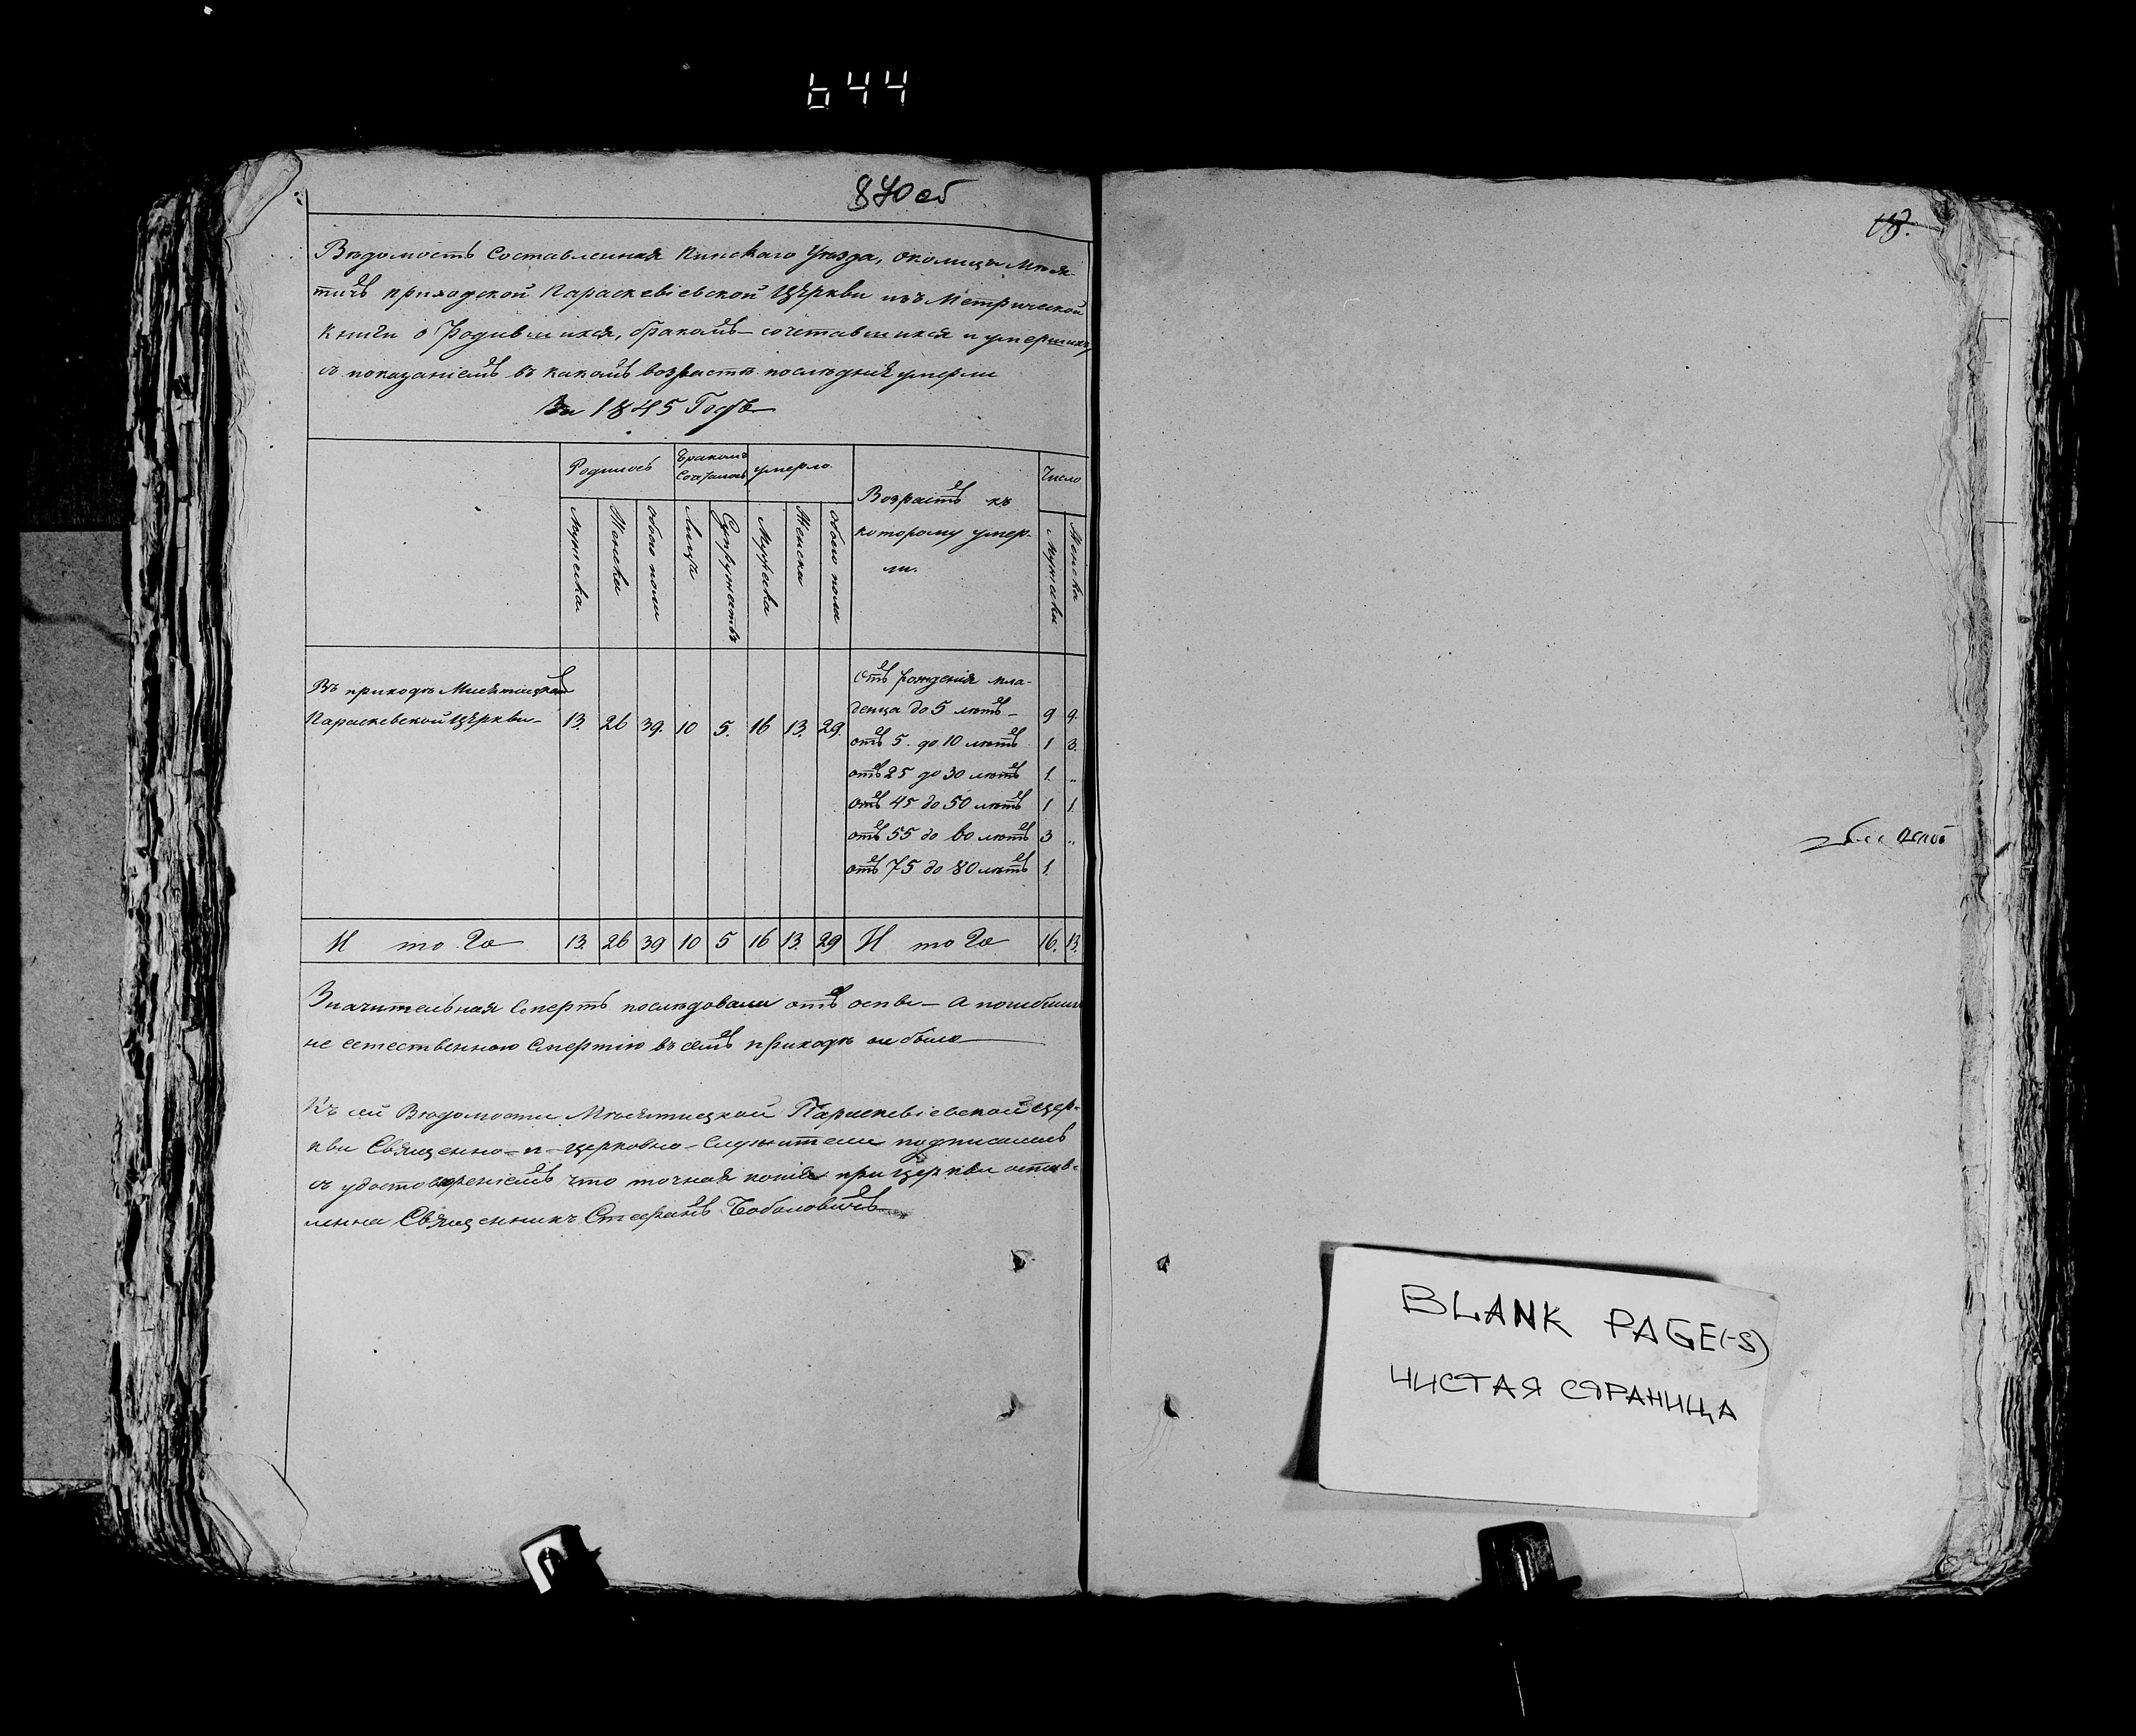 644
870 об
Вѣдомость Составленная Пинскаго Уѣзда, околицы Мѣся-
тичъ приходской Параскевіевской Церкви изъ Метрической
Книги о Родившихся, бракомъ-сочетавшихся и умершихъ,
съ показаніемъ въ какомъ возрастѣ послѣдніе умерли
За 1845 Годъ
Родилось
Бракомъ
умерло.
Возрастъ къ
которому умер-
ли.
Число
Мужеска
Женска
обоего пола
Лицъ
Супружествъ
Мужеска
Женска
обоего пола
Мужеска
Женска
Отъ рожденія мла-
Въ приходѣ
Параскевской Церкви- 13. 26 39. 10 5. 16 13. 29. денца до 5 лѣтъ- 9 9.
отъ 5. до 10 лѣтъ 1 3.
отъ 25 до 30 лѣтъ 1. "
отъ 45 до 50 лѣтъ 1 1.
отъ 55 до 60 лѣтъ 3 "
отъ 75 до 80 лѣтъ 1.
И то го 13. 26 39 10 5 16 13. 29 И то го 16. 13.
Значительная Смерть послѣдовала отъ оспы - А погибшихъ
не естественною Смертію въ семъ приходѣ не было
Къ сей Вѣдомости Параскевіевской Цер-
кви Священно-и-церковно-Служители подписались
съ удостовѣреніемъ что точная копія при церкви остав-
ленна Священникъ Стефанъ Боболовичъ
BLANK PAGE(-S)
ЧИСТАЯ СТРАНИЦА